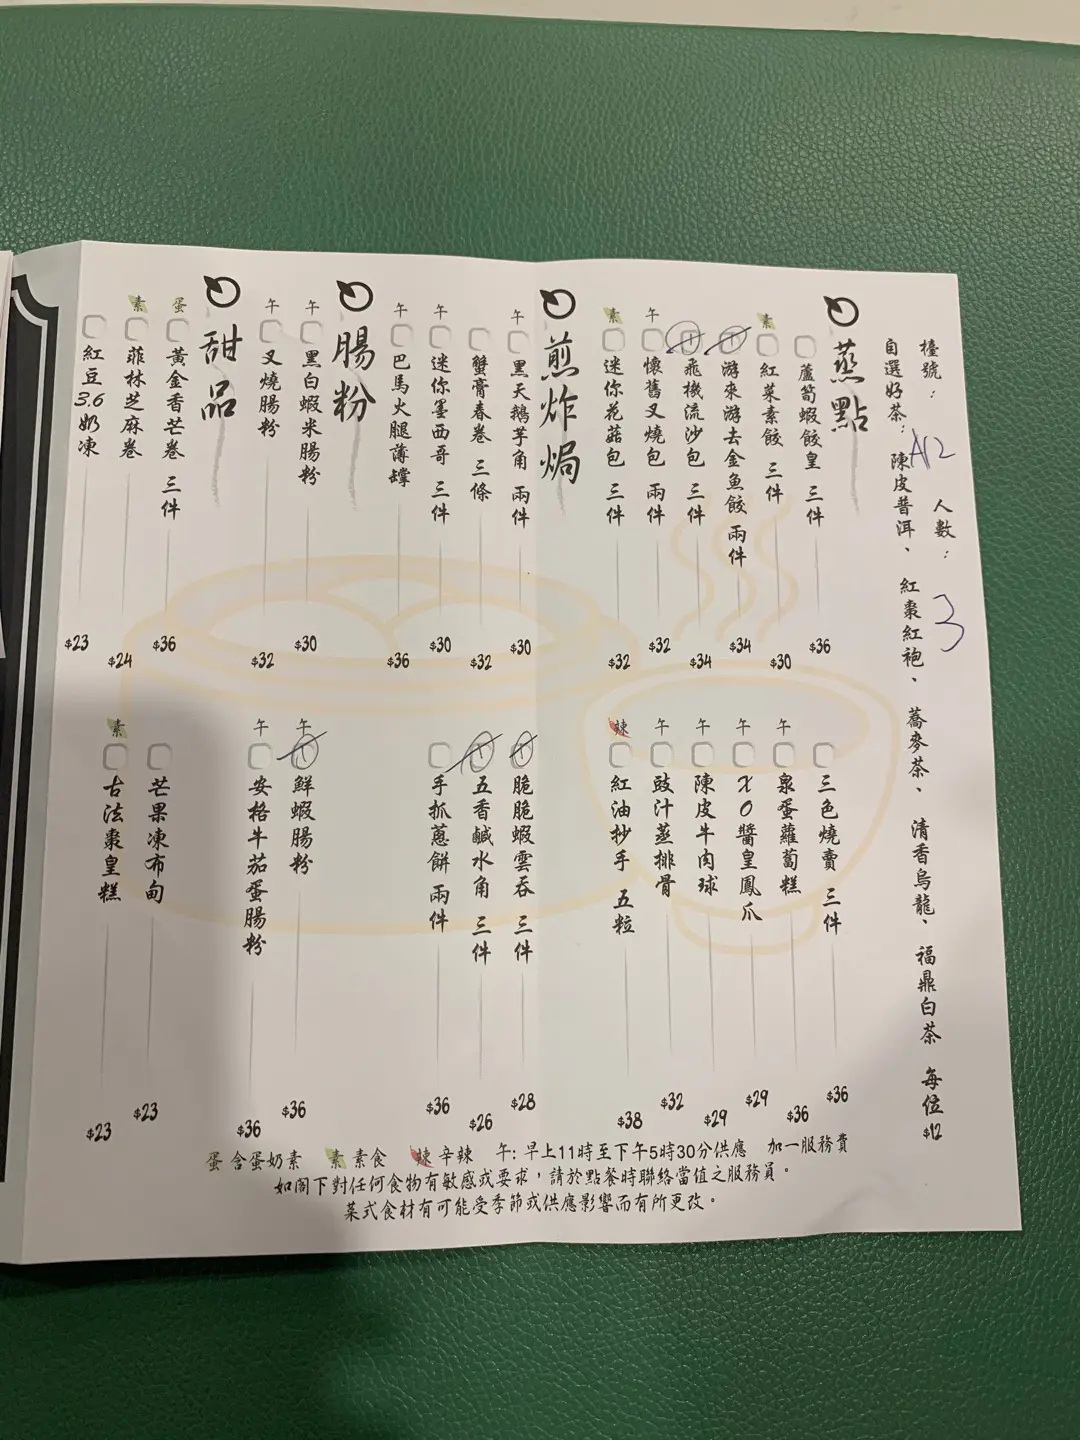 檯號： A12 人數： 3
自選好茶：陳皮普洱、紅棗紅袍、蕎麥茶、清香烏龍、福鼎白茶 每位 $12
蒸點
蘆筍蝦餃皇 三件 $36
素 紅菜素餃 三件 $30
游來游去金魚餃 兩件 $34
飛機流沙包 三件 $34
午 懷舊叉燒包 兩件 $32
素 迷你花菇包 三件 $32
三色燒賣 三件 $36
午 泉蛋蘿蔔糕 $36
午 XO醬皇鳳爪 $29
午 陳皮牛肉球 $29
午 豉汁蒸排骨 $32
辣 紅油抄手 五粒 $38
煎炸焗
午 黑天鵝芋角 兩件 $30
蟹膏春卷 三條 $32
午 迷你墨西哥 三件 $30
午 巴馬火腿薄罉 $36
脆脆蝦雲吞 三件 $28
五香鹹水角 三件 $26
手抓蔥餅 兩件 $36
腸粉
午 黑白蝦米腸粉 $30
午 叉燒腸粉 $32
午 鮮蝦腸粉 $36
午 安格牛茄蛋腸粉 $36
甜品
蛋 黃金香芒卷 三件 $36
素 菲林芝麻卷 $24
紅豆3.6奶凍 $23
芒果凍布甸 $23
素 古法棗皇糕 $23
蛋 含蛋奶素 素 素食 辣 辛辣 午: 早上11時至下午5時30分供應 加一服務費
如閣下對任何食物有敏感或要求，請於點餐時聯絡當值之服務員。
菜式食材有可能受季節或供應影響而有所更改。